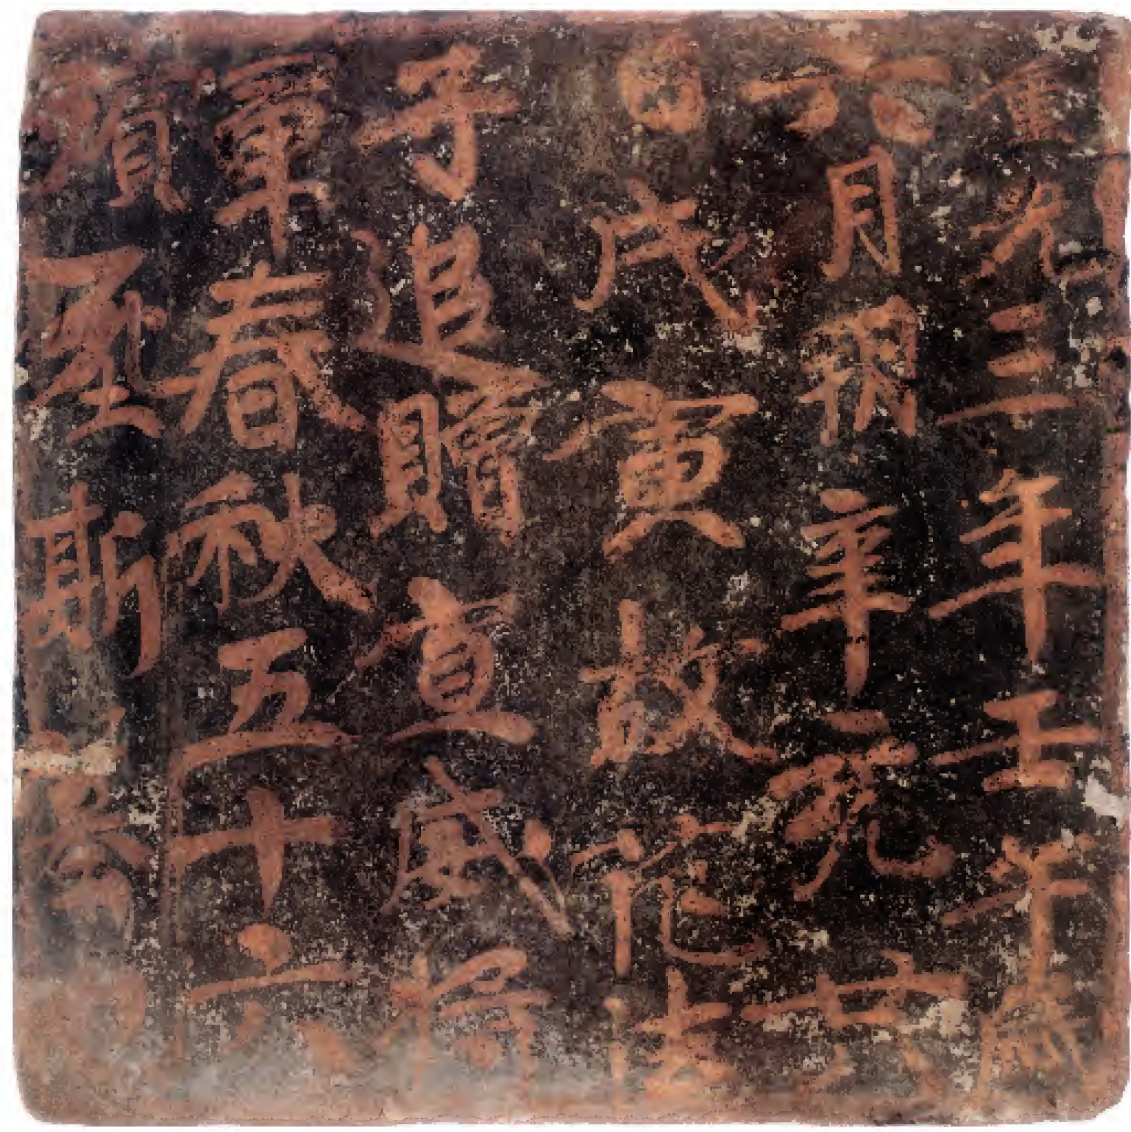 重光三年壬午歲
六月朔辛亥廿八
日戊寅故范法
子追贈宣威將
軍春秋五十六
殞斯